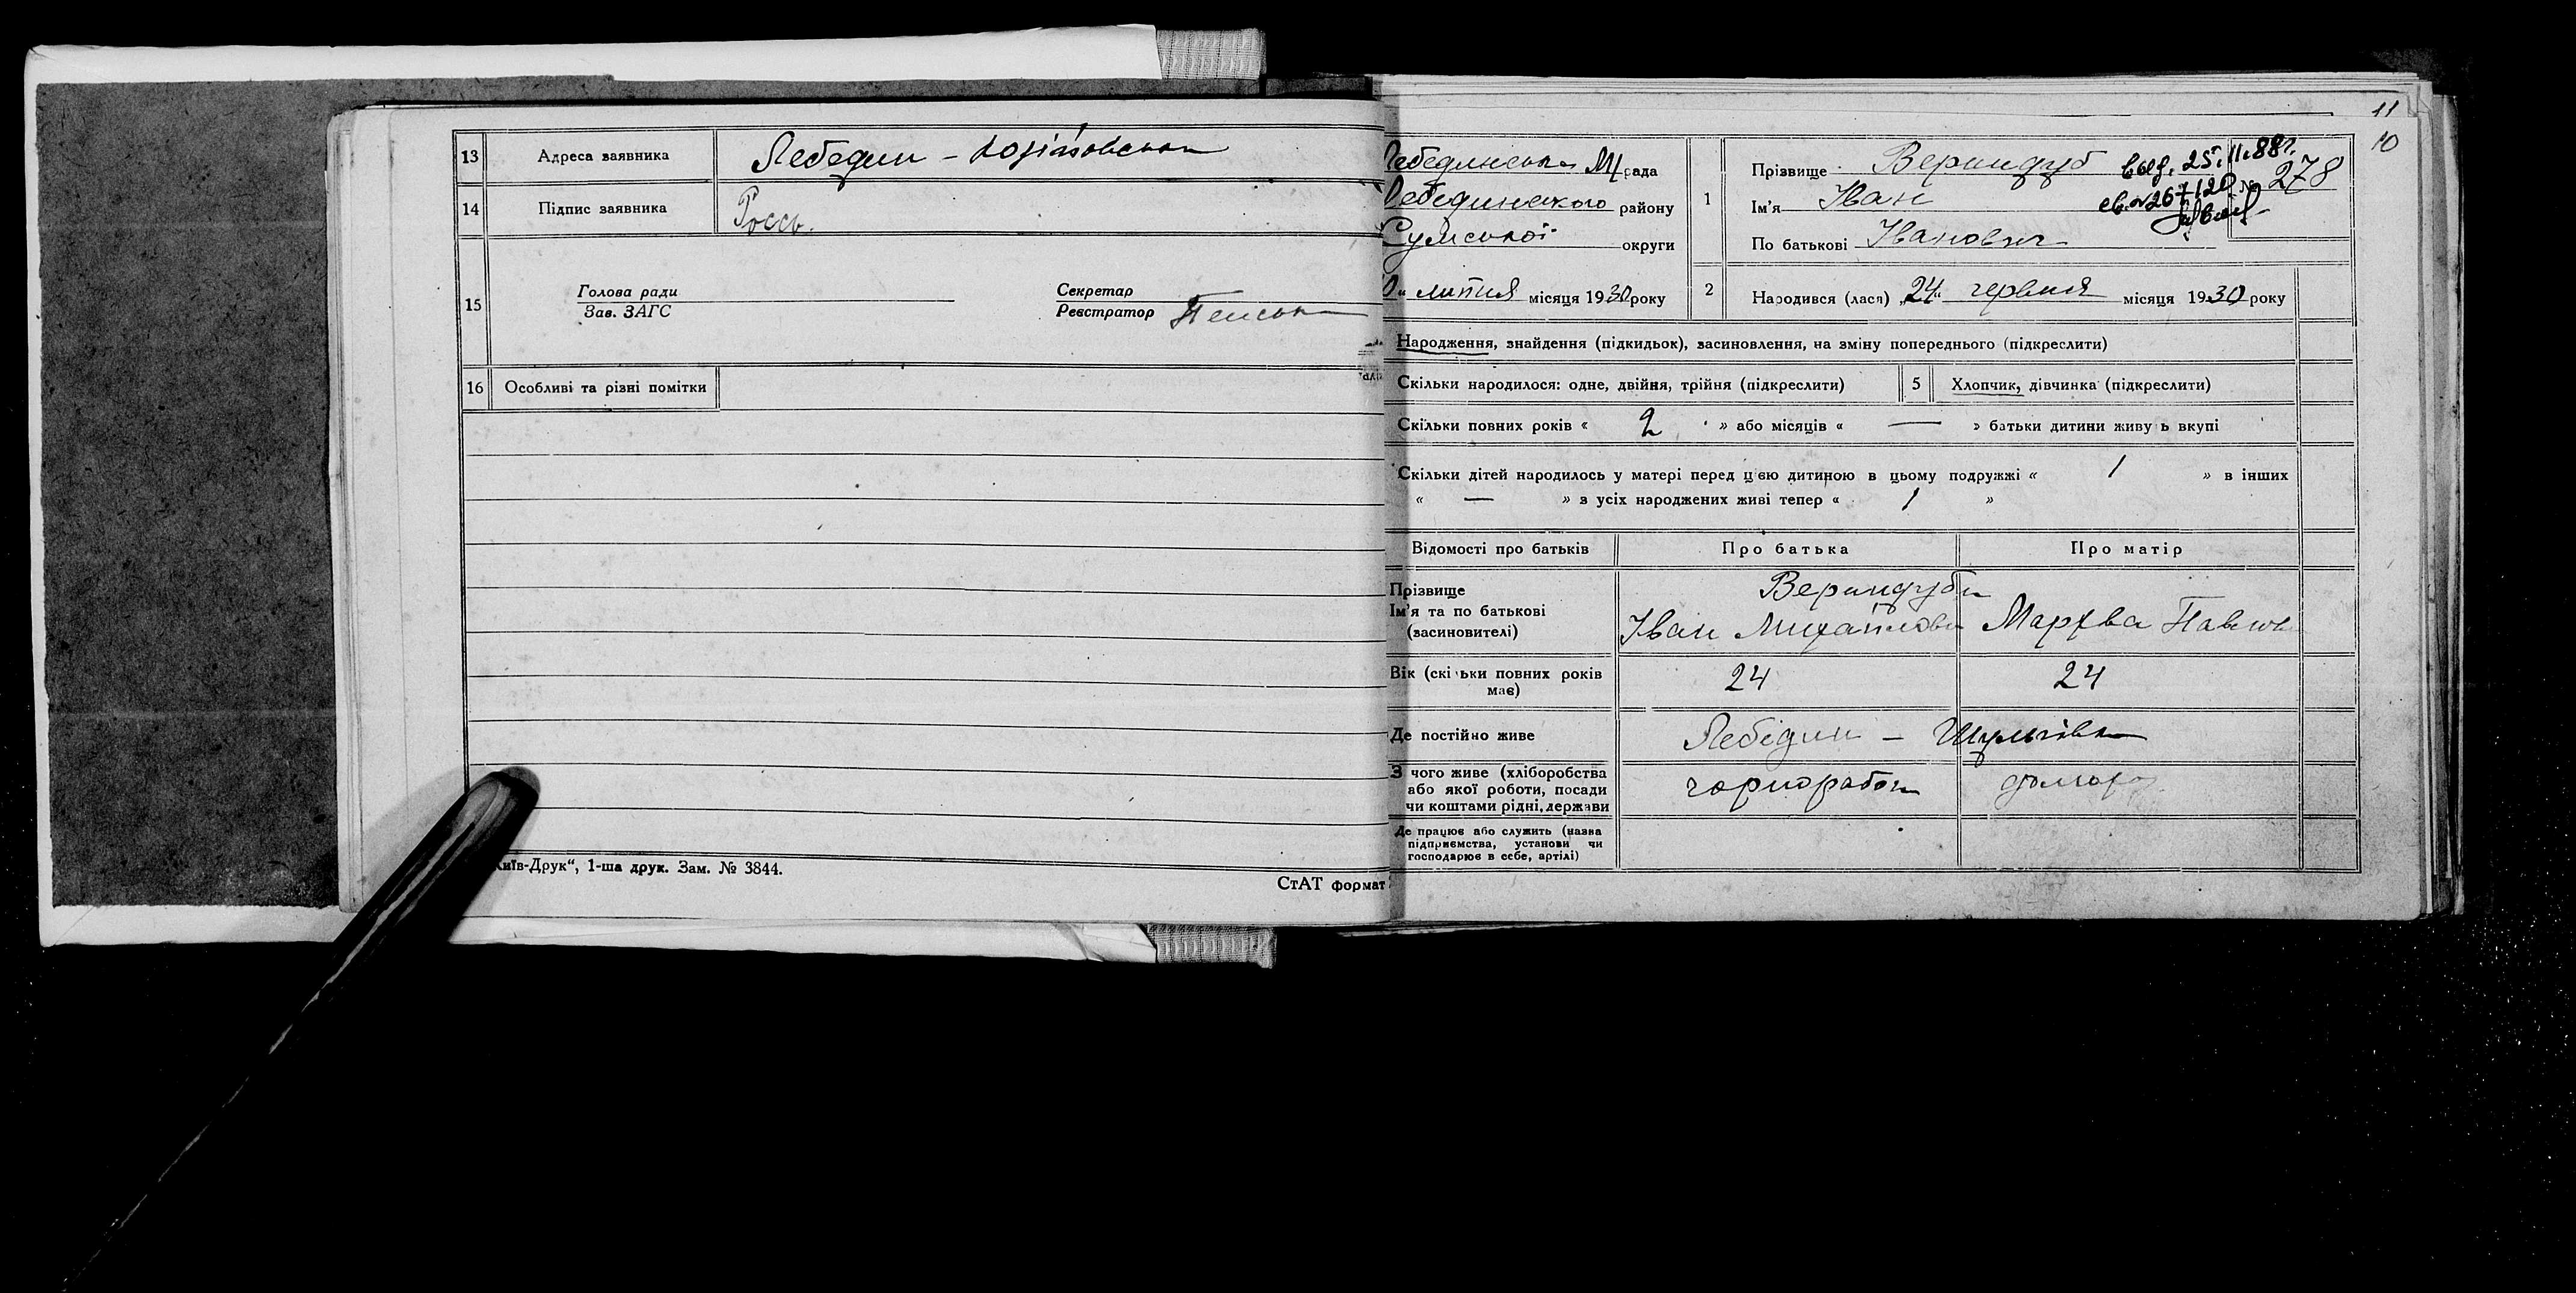 13 Адреса заявника Лебедин –
14 Підпис заявника
15 Голова ради
Зав. ЗАГС
Секретар
Реєстратор
16 Особливі та різні помітки
Київ-Друк“, 1-ша друк. Зам. № 3844.
СтАТ формат
11
10
Лебединська М рада
Лебединского району
Сумської округи
0“ липня місяця 1930 року
1 Прізвище Вериндуб
Ім'я Іван
По батькові Іванович
выд. 25.II.88г.
св. № 267120
№ 278
2 Народився (лася) „24“ червня місяця 1930 року
Народження, знайдення (підкидьок), засиновлення, на зміну попереднього (підкреслити)
Скільки народилося: одне, двійня, трійня (підкреслити) 5 Хлопчик, дівчинка (підкреслити)
Скільки повних років « 2 » або місяців « — » батьки дитини живу ь вкупі
Скільки дітей народилось у матері перед цією дитиною в цьому подружжі « 1 » в інших
« — » з усіх народжених живі тепер « 1 »
Відомості про батьків Про батька Про матір
Прізвище
Ім'я та по батькові
(засиновителі)
Вериндуби
Іван Михайлови Мархва Павлов
Вік (скільки повних років
має)
24 24
Де постійно живе Лебідин –
З чого живе (хліборобства
або якої роботи, посади
чи коштами рідні, держави
чорнорабоч домогос
Де працює або служить (назва
підприємства, установи чи
господарює в себе, артілі)